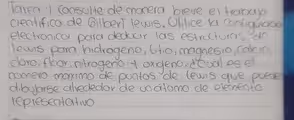 Tarea 1 Consulte de manera breve el trabajo
cientifico de Gilbert lewis. Utilice la configuración
electronica para deducir las estructuras de
lewis para hidrogeno, litio, magnesio,
cloro, fluor, nitrogeno y oxigeno. ¿Cual es el
numero maximo de puntos de lewis que puede
dibujarse alrededor de un atomo de elemento
representativo